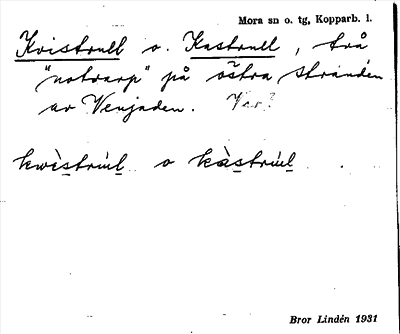 Mora sn o. tg, Kopparb. l.
Kvistrull o. Kastrull, två
"notvarp" på östra stranden
av Venjaden. Var?
kwìstrúl o kàstrúl
Bror Lindén 1931